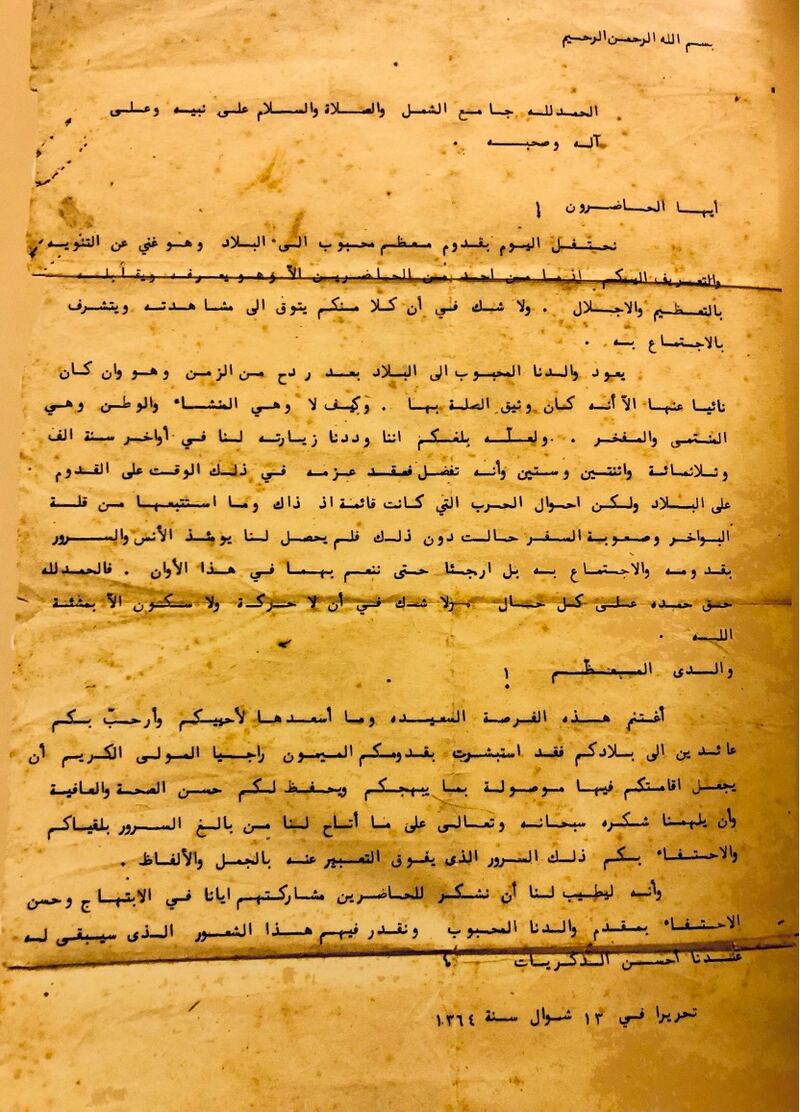 بسم الله الرحمن الرحيم
الحمدلله جامع الشمل والصلاة والسلام على نبيه وعلى
آله وصحبه .
أيها الحاضرون !
نحتفل اليوم بقدوم معظم محبوب الى البلاد وهو غني عن التنويه
والتعريف اليكم اذ ما من احد من الحاضرين الا وهو يعرفه ويقابله
بالتعظيم والاجلال . ولا شك في أن كلا منكم يتوق الى مشاهدته ويتشرف
بالاجتماع به .
يعود والدنا المحبوب الى البلاد بعد ردح من الزمن وهو وان كان
نائيا عنها الآ أنه كان وثيق الصلة بها . وكيف لا وهي المنشاء والوطن وهي
المنتمى والمفخر . ولعلّه بلغكم اننا وددنا زيارته لنا في أواخر سنة الف
وثلاثمائة واثنتين وستين وأنه تفضل فعقد عزمه في ذلك الوقت على القدوم
على البلاد ولكن احوال الحرب التي كانت قائمة اذ ذاك وما استتبعها من قلة
البواخر وصعوبة السفر حالت دون ذلك فلم يحصل لنا يومئذ الأنس والسرور
بقدومه والاجتماع به بل ارجئا حتى ننعم بهما في هذا الأوان . فالحمدلله
حق حمده على كل حال . ولا شك في أن لا حركة ولا سكون الآ بمشئة
الله .
والدى المعظّم !
أغتنم هذه الفرصة السعيده وما أسعدها لأحييكم وأرحبّ بكم
عائدين الى بلادكم فقد استبشرت بقدومكم الميمون راجيا المولى الكريم أن
يجعل اقامتكم فيها موصولة بما يبهجكم ويحفظ لكم حسن الصحة والعافية
وأن يلهمنا شكره سبحانه وتعالى على ما أتاح لنا من بالغ السرور بلقياكم
والاحتفاء بكم ذلك السرور الذى يفوق التعبير عنه بالجمل والألفاظ .
وأنه ليطيب لنا أن نشكر للحاضرين مشاركتهم ايانا في الابتهاج وحسن
الاحتفاء بمقدم والدنا المحبوب ونقدر فيهم هذا الشعور الذى سيبقى له
عندنا أحسن الذكريات
تحريرا في ١٣ شوال سنة ١٣٦٤